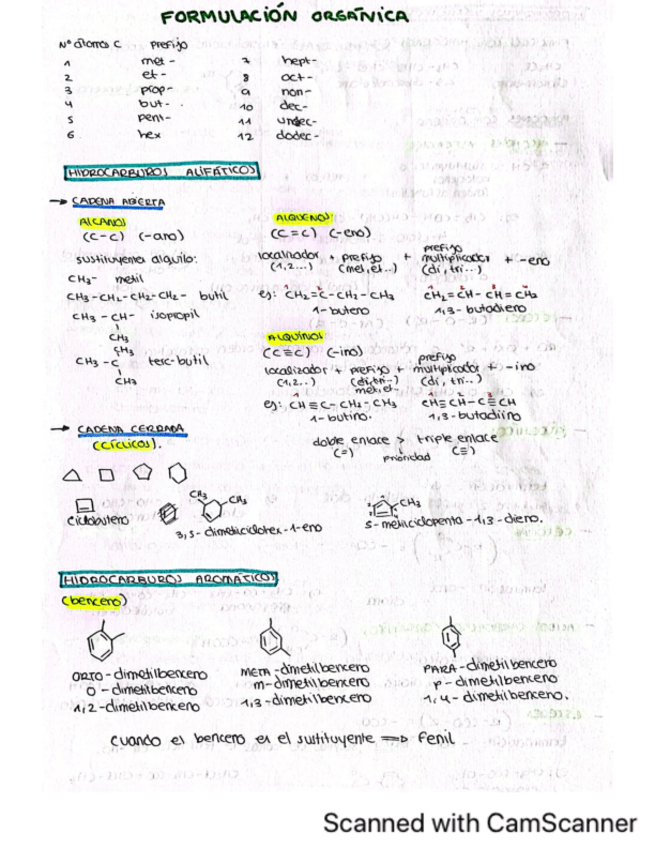 FORMULACIÓN ORGÁNICA
Nº átomos C prefijo
1 met- 7 hept-
2 et- 8 oct-
3 prop- 9 non-
4 but- 10 dec-
5 pent- 11 undec-
6 hex 12 dodec-
HIDROCARBUROS ALIFÁTICOS
→ CADENA ABIERTA
ALCANOS ALQUENOS
(C-C) (-ano) (C=C) (-eno)
sustituyentes alquilo:
CH3- metil
CH3-CH2-CH2-CH2- butil
CH3-CH- isopropil
CH3
CH3
CH3-C terc-butil
CH3
localizador + prefijo + prefijo multiplicador + -eno
(1,2...) (met, et..) (di, tri...)
ej: CH2=C-CH2-CH3 CH2=CH-CH=CH2
1-buteno 1,3-butadieno
ALQUINOS
(C≡C) (-ino)
localizador + prefijo + prefijo multiplicador + -ino
(1,2..) (di, tri-) met, et- (di, tri..)
ej: CH≡C-CH2-CH3 CH≡CH-C≡CH
1-butino. 1,3-butadiino
doble enlace > triple enlace
(=) prioridad (≡)
→ CADENA CERRADA
(CÍCLICOS).
CH3 -CH3 CH3
ciclobuteno 3,5-dimetilciclohex-1-eno 5-metilciclopenta-1,3-dieno.
HIDROCARBUROS AROMÁTICOS
(benceno)
ORTO-dimetilbenceno META-dimetilbenceno PARA-dimetilbenceno
o-dimetilbenceno m-dimetilbenceno p-dimetilbenceno
1,2-dimetilbenceno 1,3-dimetilbenceno 1,4-dimetilbenceno.
cuando el benceno es el sustituyente ⇒ Fenil
Scanned with CamScanner